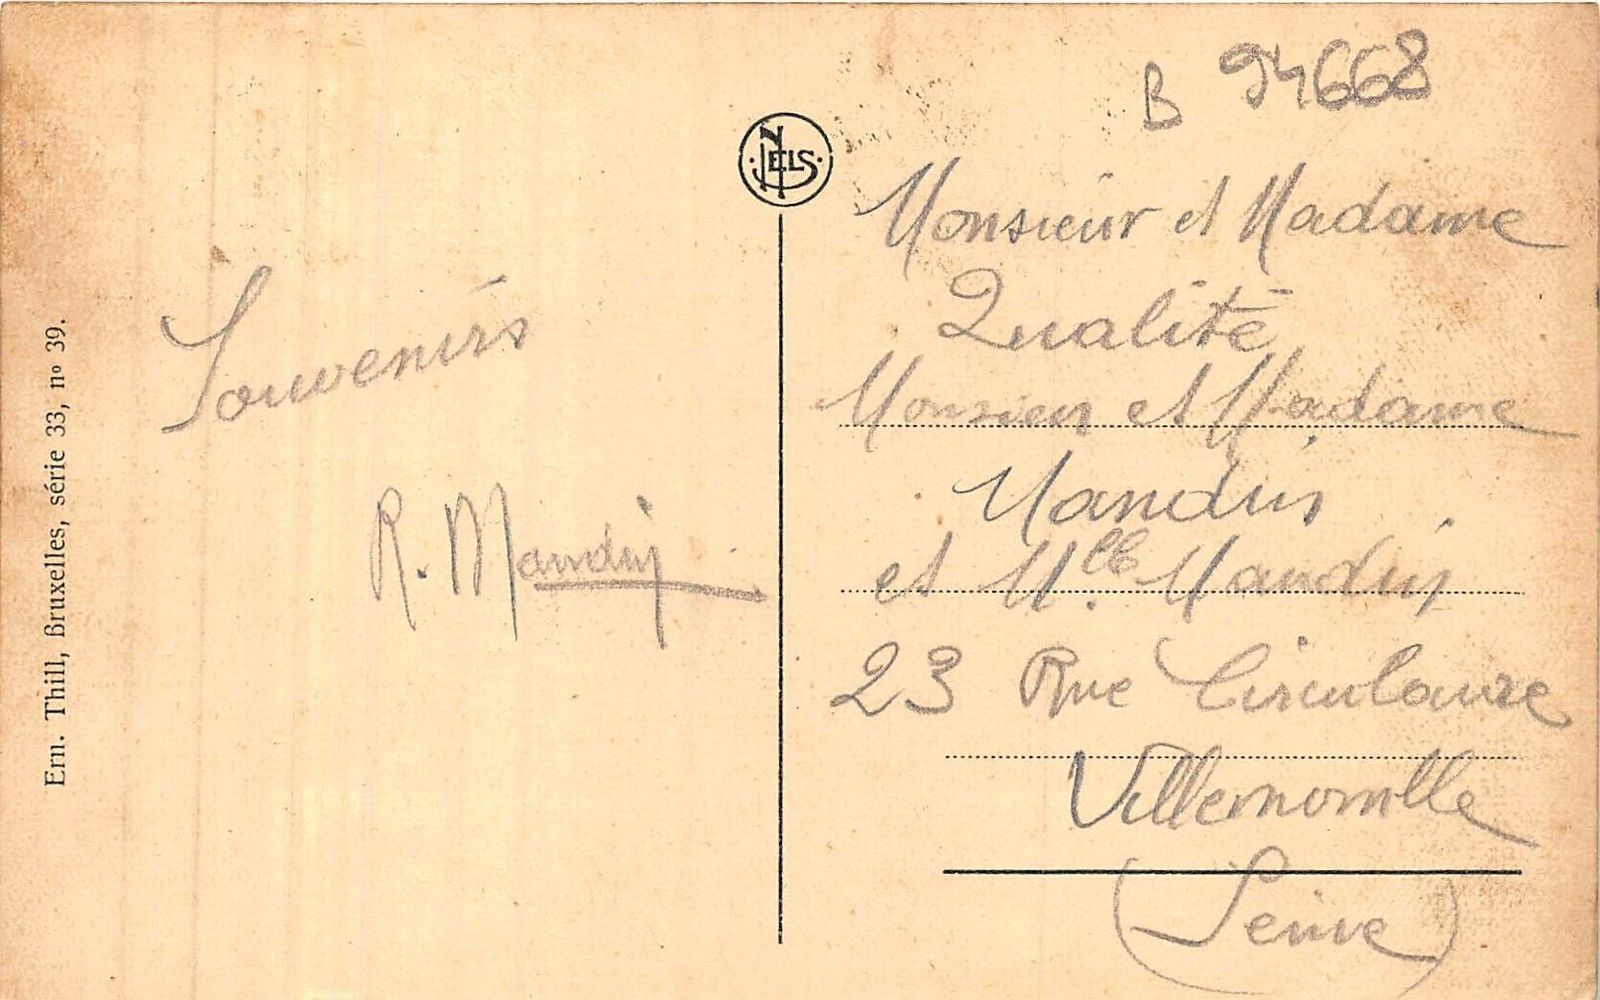 B 94668
NELS
Ern. Thill, Bruxelles, série 33, nº 39.
Souvenirs
R. Mandin
Monsieur et Madame
Qualité
Monsieur et Madame
Mandin
et Mlle Mandin
23 Rue Circulaire
Villemomble
(Seine)